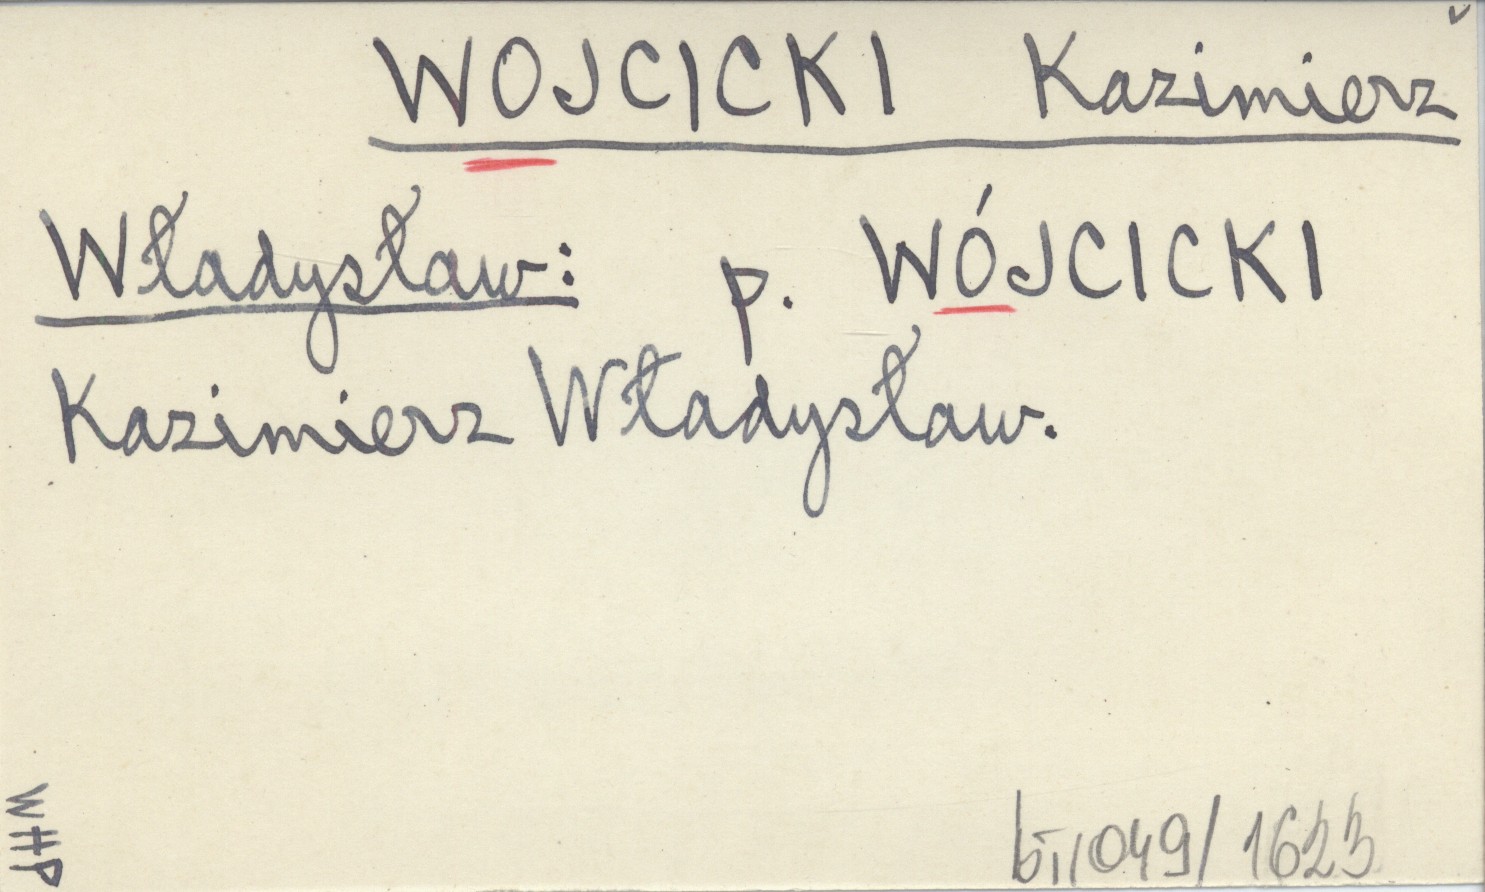 WOJCICKI Kazimierz
Władysław: p. WÓJCICKI
Kazimierz Władysław.
WHP
1623